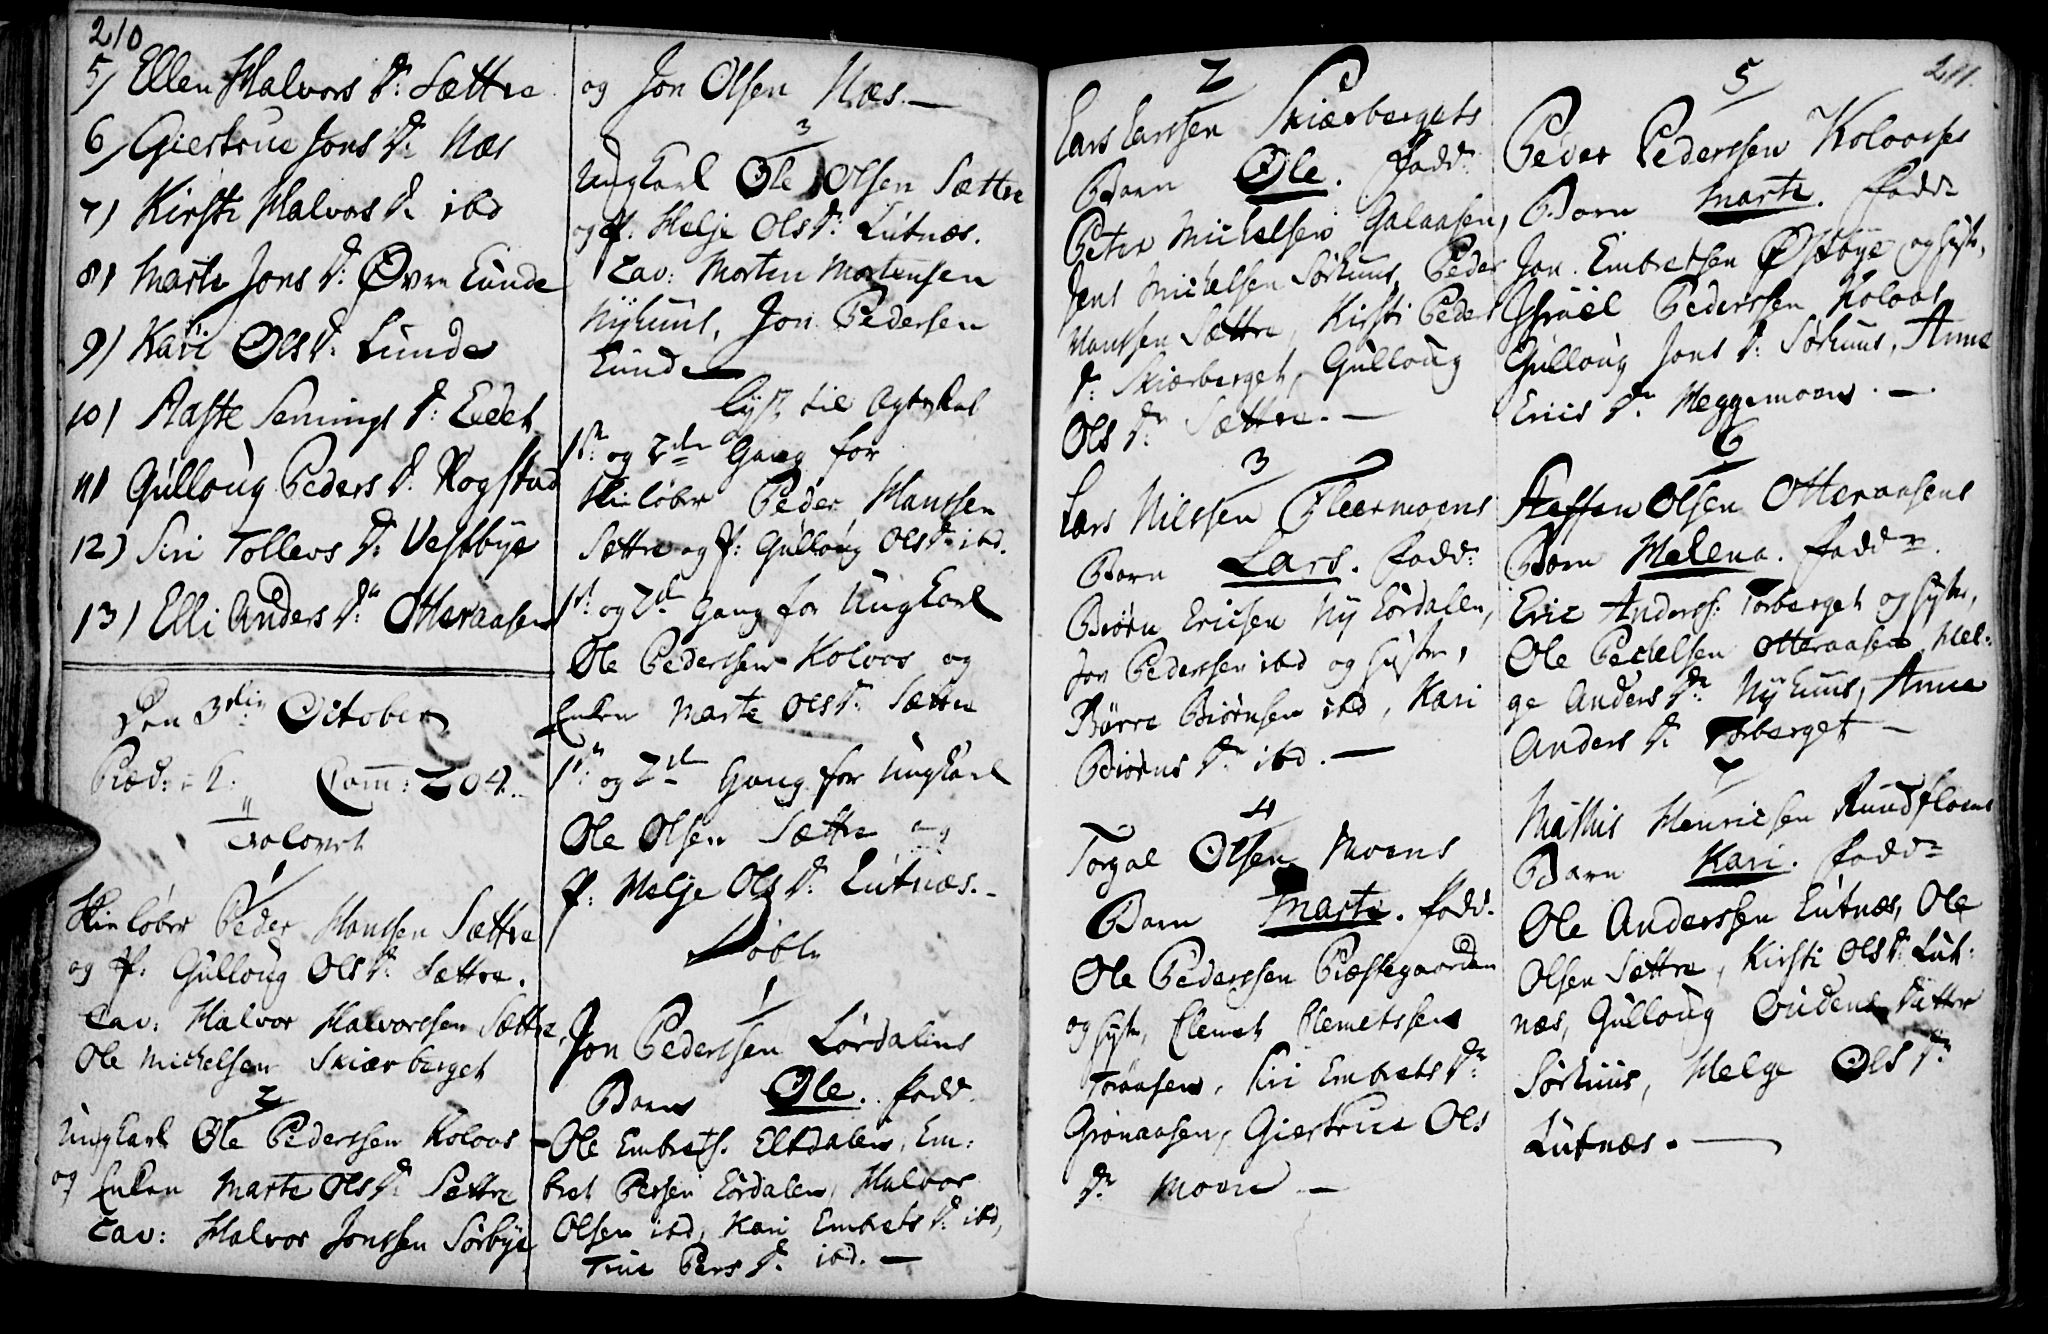 210
5) Ellen Halvors Dr: Sættre
6) Giertrue Jons Dr Næs
7) Kirsti Halvors Dr ibd
8) Marte Jons Dr: Øvre Lunde
9) Kari Ols Dr: Lunde
10) Aaste Semings Dr: Eedet
11) Gulloug Peders Dr. Rogstad
12) Siri Tollevs Dr: Vestbye
13) Elli Anders Dr Otteraasen
Den 3die October
Præd: Comm: 204.
Trolovet
1
Skieløber Peder Hanssen Sættre
og P: Gulloug Ols Dr: Sættre.
Cav: Halvor Halvorssen Sættre,
Ole Michelsen Skiærberget
2
Ungkarl Ole Pederssen Kolaas
og Enken Marte Ols Dr Settre
Cav: Halvor Jonssen Sørbye
og Jon Olsen Næs.—
3
Ungkarl Ole Olsen Sættre
og P: Helje Ols Dr: Lutnæs.
Cav: Morten Mortensen
Nyhuus, Jon Pedersen
Lunde
Lyst til Ægteskab
1ste og 2den Gang for
Skieløber Peder Hanssen
Sættre og P: Gulloug Ols Dr ibd.
1ste og 2den Gang for Ungkarl
Ole Pederssen Kolaas og
Enken Marte Ols Dr. Sættre
1ste og 2den Gang for Ungkarl
Ole Olsen Sættre og
P: Helje Ols Dr: Lutnæs.-
Døbte
1
Jon Pederssen Lørdalens
Barn Ole. fadd.
Ole Embrets. Eltdalen, Em:
bret Persen Lørdalen, Halvor
Olsen ibd, Kari Embrets Dr. ibd,
True Pers Dr. ibd.—
2
Lars Larssen Skiærbergets
Barn Ole. fadd:
Peter Michelsen Galaasen,
Jens Michelsen Sørhuus, Peder
Hanssen Sættre, Kirsti Peders
Dr. Skiærberget, Gulloug
Ols Dr Sættre.—
3
Lars Nilssen Fleermoens
Barn Lars. fadd:
Biørn Ericsen Ny Lørdalen,
Jon Pederssen ibd og hustr.,
Børre Biørnsen ibd, Kari
Biørns Dr ibd.—
4
Torgal Olsen Moens
Barn Marte. fadd.
Ole Pederssen Præstegaarden
og hustr, Clemet Clemetssen
Toraasen, Siri Embrets Dr
Grønaasen, Giertrue Ols
Dr Moen —
211.
5
Peder Pederssen Kolaasses
Barn Marte. fadd:
Jon Embretsen Østbye og hustr,
Israël Pederssen Kolaas
Gulloug Jons Dr. Sørhuus, Anne
Erics Dr Heggemoen.—
6
Steffen Olsen Otteraasens
Barn Helena. fadd:
Eric Anderss: Torberget og hustr,
Ole Pedelsen Otteraasen, Hel:
ge Anders Dr Nyhuus, Anne
Anders Dr Torberget —
7
Mathis Henricsen Rundfloens
Barn Kari. fadd:
Ole Anderssen Lutnæs, Ole
Olsen Sættre, Kirsti Ols Dr Lut:
næs, Gulloug Oudens Datter
Sørhuus, Helge Ols Dr
Lutnæs.—